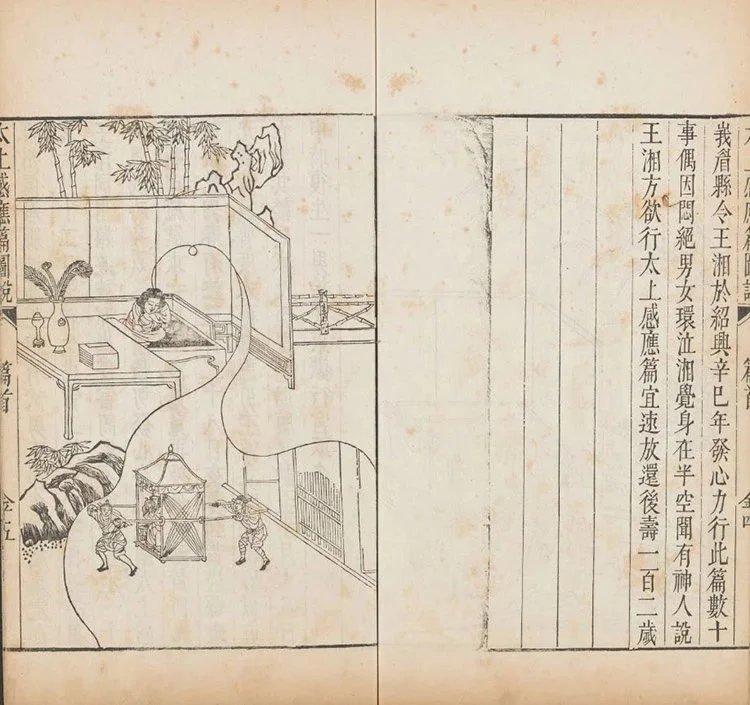 峩睂縣令王湘於紹興辛巳年發心力行此篇數十
事偶因悶絕男女環泣湘覺身在半空聞有神人說
王湘方欲行太上感應篇宜速放還後壽一百二歲
太上感應篇圖說
篇首
金五